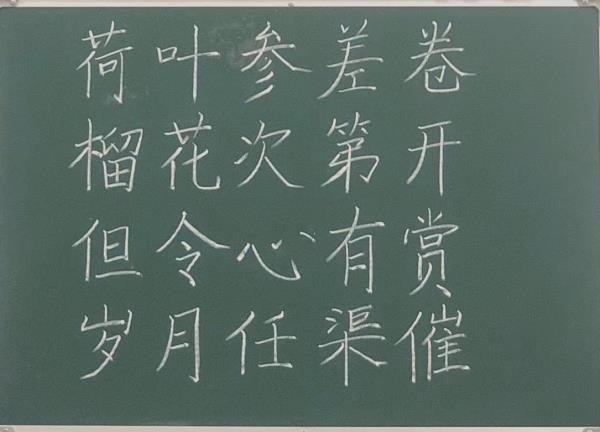 荷叶参差卷
榴花次第开
但令心有赏
岁月任渠催